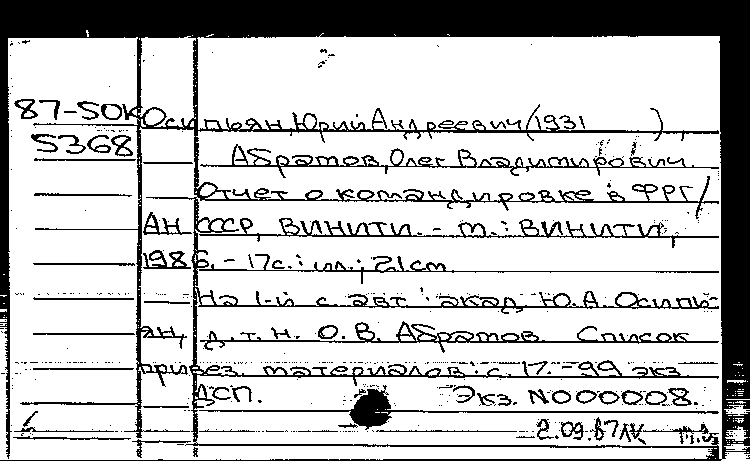 87-50К Осипьян, Юрий Андреевич (1931 ),
5368 Абрамов, Олег Владимирович.
Отчет о командировке в ФРГ /
АН СССР, ВИНИТИ. - М.: ВИНИТИ,
1986. - 17с.: ил.; 21см.
На 1-й с. авт.: акад. Ю.А. Осипь-
ян, д.т.н. О.В. Абрамов. Список
привез. материалов: с. 17. - 99 экз.
ДСП. Экз. N000008.
2.09.87